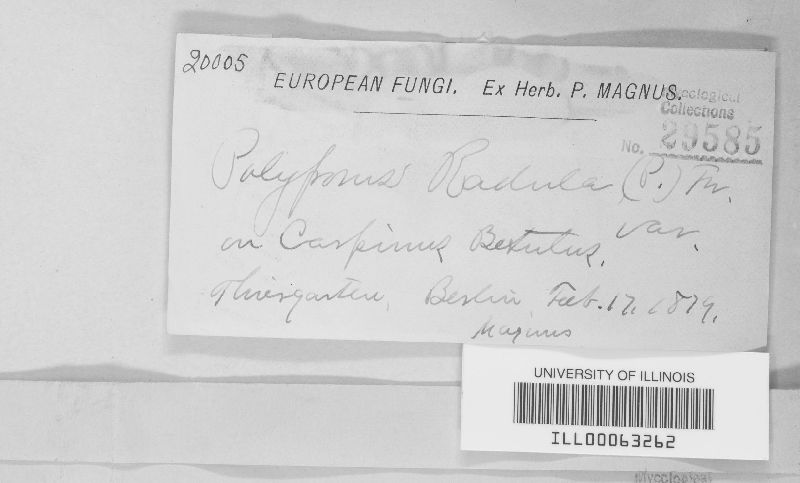 20005
EUROPEAN FUNGI. Ex Herb. P. MAGNUS.
Mycological
Collections
No. 29585
Polyporus Radula (P.) Fr.
var.
on Carpinus Betulus,
Thiergarten, Berlin, Feb. 17, 1879.
Magnus
UNIVERSITY OF ILLINOIS
ILL00063262
Mycological